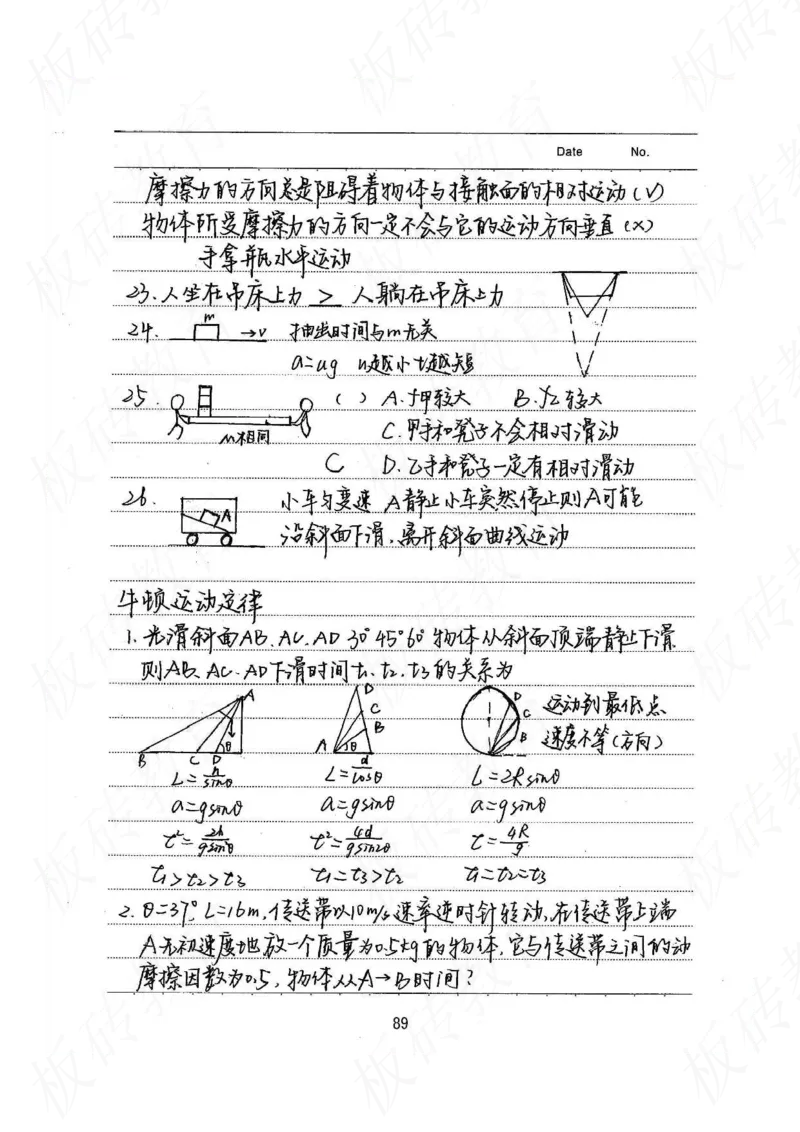 Date No.
摩擦力的方向总是阻碍着物体与接触面的相对运动(√)
物体所受摩擦力的方向一定不会与它的运动方向垂直(×)
手拿瓶水平运动
23.人坐在吊床上力 > 人躺在吊床上力
24. m →v 抽出时间与m无关
a=ug u越小t越短
25. ( ) A.f甲较大 B.f乙较大
m相同 C.甲手和凳子不会相对滑动
C D.乙手和凳子一定有相对滑动
26. A 小车匀变速 A静止小车突然停止则A可能
沿斜面下滑.离开斜面曲线运动
牛顿运动定律
1.光滑斜面AB.AC.AD 30° 45° 60° 物体从斜面顶端静止下滑
则AB、AC.AD下滑时间t1、t2.t3的关系为
A B C D θ
D C B A θ
D C B 运动到最低点
速度不等(方向)
L=h/sinθ L=d/cosθ L=2Rsinθ
a=gsinθ a=gsinθ a=gsinθ
t²=2h/gsin²θ t²=4d/gsin2θ t=4R/g
t1>t2>t3 t1=t3>t2 t1=t2=t3
2. θ=37°.L=16m,传送带以10m/s速率逆时针转动,在传送带上端
A无初速度地放一个质量为0.5kg的物体,它与传送带之间的动
摩擦因数为0.5,物体从A→B时间?
89
板砖教育